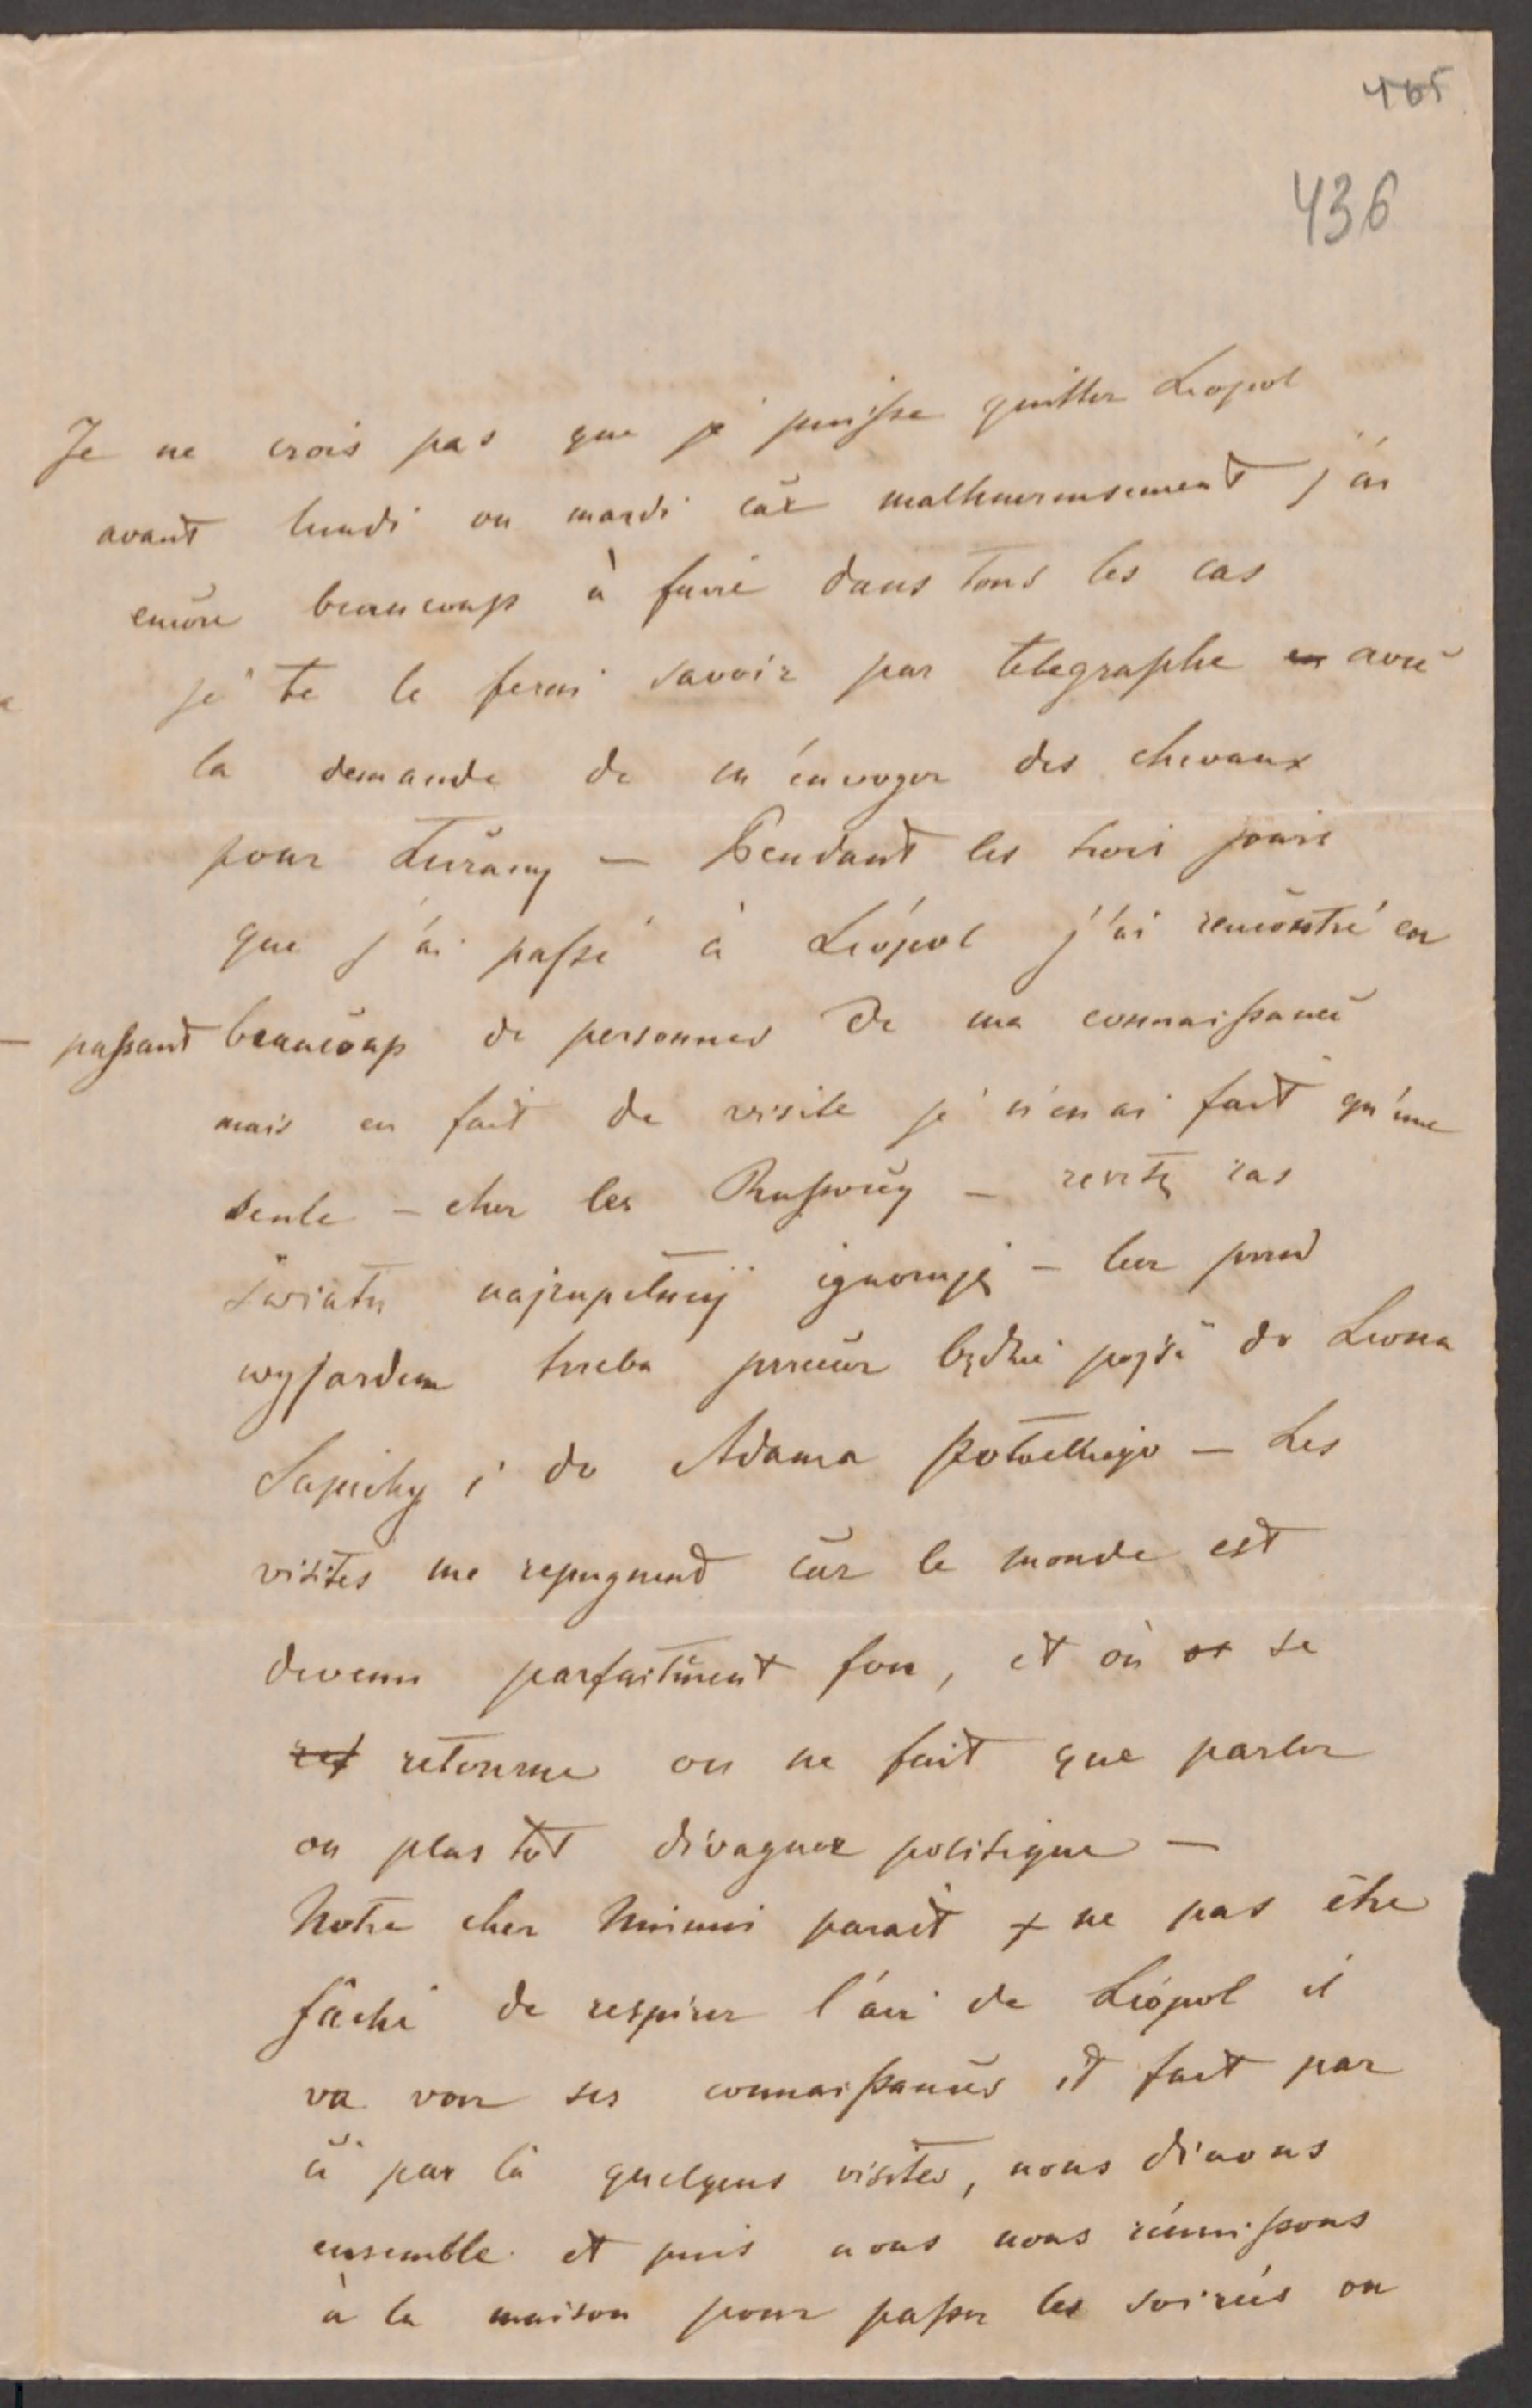 465
436
Je ne crois pas que je puisse quitter Léopol
avant lundi ou mardi car malheureusement j'ai
encore beaucoup à faire dans tous les cas
je te le ferai savoir par telegraphe avec
la demande de m'envoyer des chevaux
pour — Pendant les trois jours
que j'ai passé à Léopol j'ai rencontré en
passant beaucoup de personnes de ma connaissance
mais en fait de visite je n'en ai fait qu'une
seule – chez les Russocky – resztę zas
swiatu najzupełniej ignoruję – lecz przed
wyjazdem trzeba jeszcze będzie pojść do Leona
Sapiehy i do Adama Potockiego – Les
visites me repugnend car le monde est
devenu parfaitment fou, et où se
retourne on ne fait que parler
ou plus tôt divaguer politique —
Notre cher Mimi parait ne pas être
fâché de respirer l'air de Léopol il
va voir ses connaissances et fait par
ci par là quelques visites, nous dinons
ensemble et puis nous nous réunissons
à la maison pour passer les soirées on